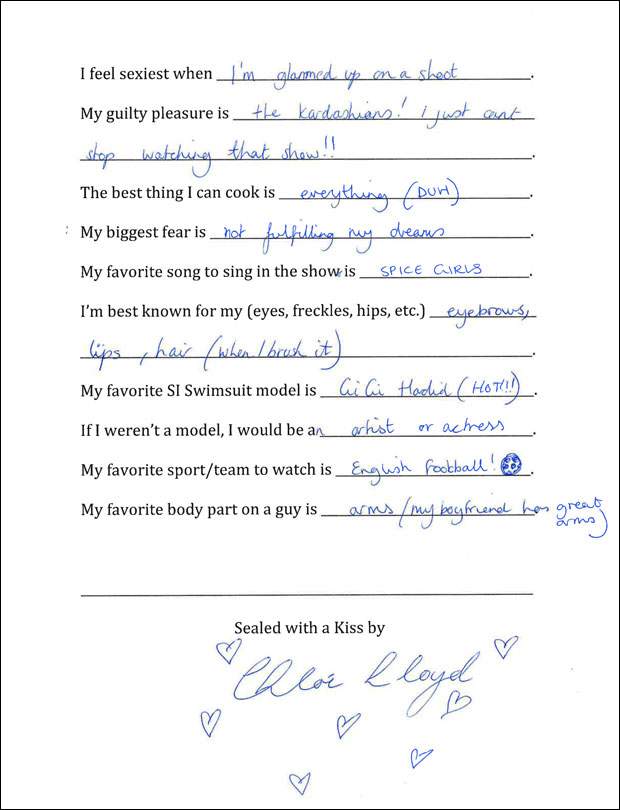 I feel sexiest when I'm glammed up on a shoot.
My guilty pleasure is the Kardashians! I just cant
stop watching that show!!.
The best thing I can cook is everything (DUH).
My biggest fear is not fulfilling my dreams.
My favorite song to sing in the show is SPICE GIRLS.
I'm best known for my (eyes, freckles, hips, etc.) eyebrows,
lips, hair (when I brush it).
My favorite SI Swimsuit model is GiGi Hadid (HOT!!!).
If I weren't a model, I would be an artist or actress.
My favorite sport/team to watch is English Football!.
My favorite body part on a guy is arms (my boyfriend has great
arms)
Sealed with a Kiss by
Chloe Lloyd